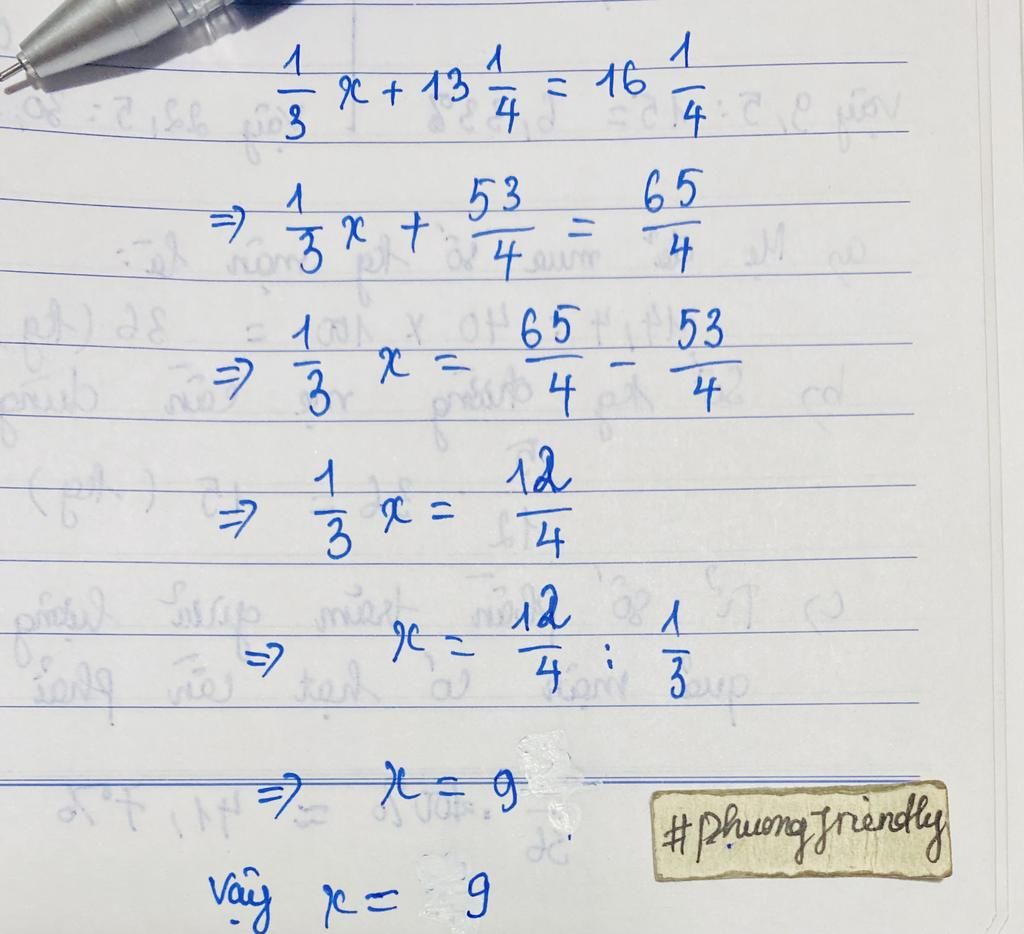 1/3 x + 13 1/4 = 16 1/4
⇒ 1/3 x + 53/4 = 65/4
⇒ 1/3 x = 65/4 - 53/4
⇒ 1/3 x = 12/4
⇒ x = 12/4 : 1/3
⇒ x = 9
#phuongfriendly
Vậy x = 9